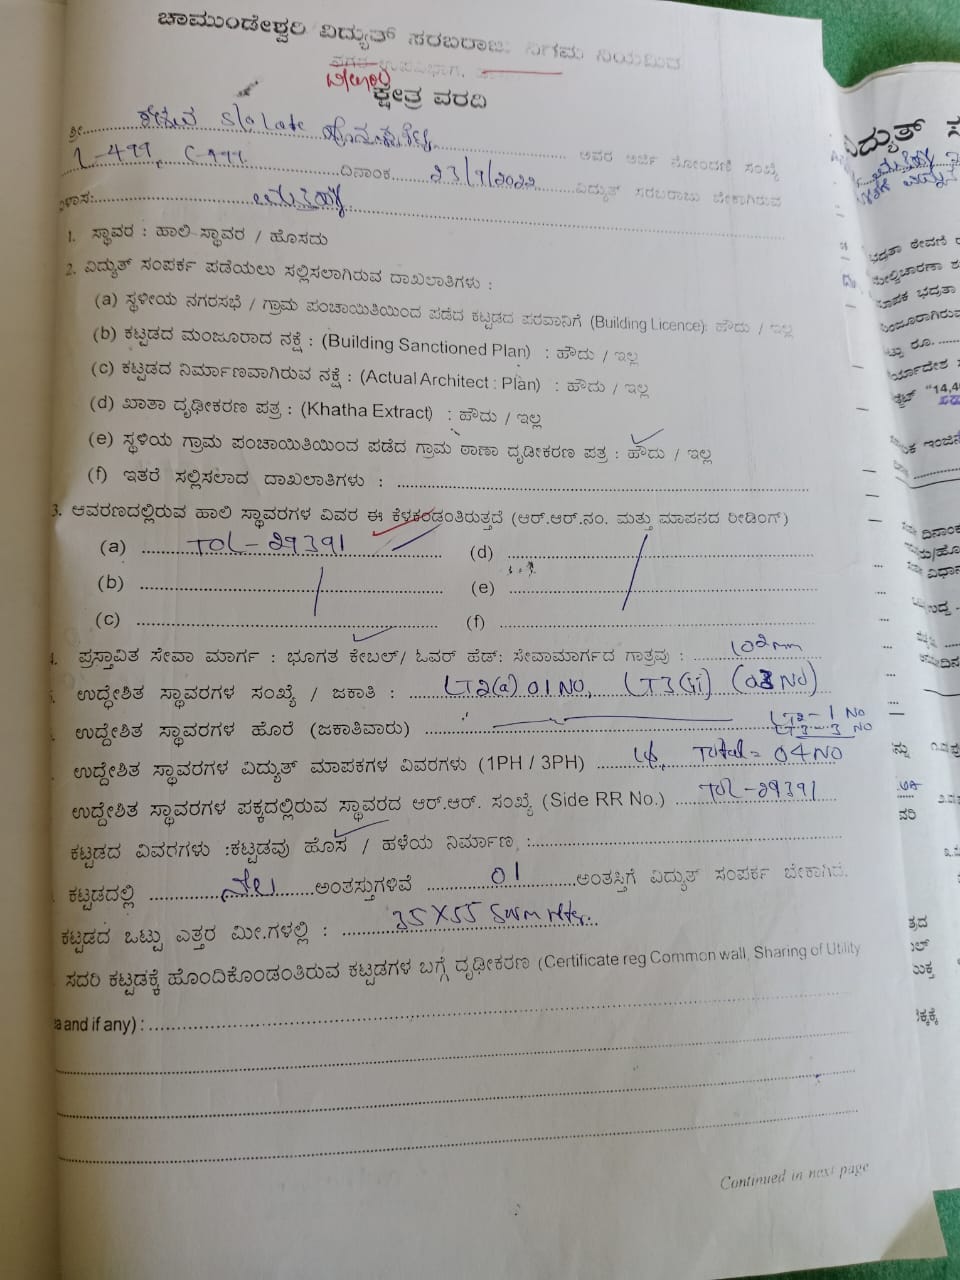 ಚಾಮುಂಡೇಶ್ವರಿ ವಿದ್ಯುತ್ ಸರಬರಾಜು ನಿಗಮ ನಿಯಮಿತ
ನಗರ ಉಪವಿಭಾಗ,
ಕ್ಷೇತ್ರ ವರದಿ
ಶ್ರೀ. S/o Late ಅವರ ಅರ್ಜಿ ನೋಂದಣಿ ಸಂಖ್ಯೆ
L-499, C-199 ದಿನಾಂಕ 23/9/2022 ವಿದ್ಯುತ್ ಸರಬರಾಜು ಬೇಕಾಗಿರುವ
1. ಸ್ಥಾವರ : ಹಾಲಿ ಸ್ಥಾವರ / ಹೊಸದು
2. ವಿದ್ಯುತ್ ಸಂಪರ್ಕ ಪಡೆಯಲು ಸಲ್ಲಿಸಲಾಗಿರುವ ದಾಖಲಾತಿಗಳು :
(a) ಸ್ಥಳೀಯ ನಗರಸಭೆ / ಗ್ರಾಮ ಪಂಚಾಯಿತಿಯಿಂದ ಪಡೆದ ಕಟ್ಟಡದ ಪರವಾನಿಗೆ (Building Licence): ಹೌದು / ಇಲ್ಲ
(b) ಕಟ್ಟಡದ ಮಂಜೂರಾದ ನಕ್ಷೆ : (Building Sanctioned Plan) : ಹೌದು / ಇಲ್ಲ
(c) ಕಟ್ಟಡದ ನಿರ್ಮಾಣವಾಗಿರುವ ನಕ್ಷೆ : (Actual Architect : Plan) : ಹೌದು / ಇಲ್ಲ
(d) ಖಾತಾ ದೃಢೀಕರಣ ಪತ್ರ : (Khatha Extract) : ಹೌದು / ಇಲ್ಲ
(e) ಸ್ಥಳಿಯ ಗ್ರಾಮ ಪಂಚಾಯಿತಿಯಿಂದ ಪಡೆದ ಗ್ರಾಮ ಠಾಣಾ ದೃಡೀಕರಣ ಪತ್ರ : ಹೌದು / ಇಲ್ಲ
(f) ಇತರೆ ಸಲ್ಲಿಸಲಾದ ದಾಖಲಾತಿಗಳು :
3. ಆವರಣದಲ್ಲಿರುವ ಹಾಲಿ ಸ್ಥಾವರಗಳ ವಿವರ ಈ ಕೆಳಕಂಡಂತಿರುತ್ತದೆ (ಆರ್.ಆರ್.ನಂ. ಮತ್ತು ಮಾಪನದ ರೀಡಿಂಗ್)
(a) TOL-29391 (d)
(b) (e)
(c) (f)
4. ಪ್ರಸ್ತಾವಿತ ಸೇವಾ ಮಾರ್ಗ : ಭೂಗತ ಕೇಬಲ್/ ಓವರ್ ಹೆಡ್: ಸೇವಾಮಾರ್ಗದ ಗಾತ್ರವು :
ಉದ್ಧೇಶಿತ ಸ್ಥಾವರಗಳ ಸಂಖ್ಯೆ / ಜಕಾತಿ : LT2(a) 01 NO, LT3(ii) (03 NO)
ಉದ್ದೇಶಿತ ಸ್ಥಾವರಗಳ ಹೊರೆ (ಜಕಾತಿವಾರು) LT2 - 1 NO
LT-3 - 3 NO
ಉದ್ದೇಶಿತ ಸ್ಥಾವರಗಳ ವಿದ್ಯುತ್ ಮಾಪಕಗಳ ವಿವರಗಳು (1PH / 3PH) Total = 04 NO
ಉದ್ದೇಶಿತ ಸ್ಥಾವರಗಳ ಪಕ್ಕದಲ್ಲಿರುವ ಸ್ಥಾವರದ ಆರ್.ಆರ್. ಸಂಖ್ಯೆ (Side RR No.) TOL-29391
ಕಟ್ಟಡದ ವಿವರಗಳು :ಕಟ್ಟಡವು ಹೊಸ / ಹಳೆಯ ನಿರ್ಮಾಣ, :
ಕಟ್ಟಡದಲ್ಲಿ ನೆಲ ಅಂತಸ್ತುಗಳಿವೆ 01 ಅಂತಸ್ತಿಗೆ ವಿದ್ಯುತ್ ಸಂಪರ್ಕ ಬೇಕಾಗಿದೆ.
ಕಟ್ಟಡದ ಒಟ್ಟು ಎತ್ತರ ಮೀ.ಗಳಲ್ಲಿ : 35X55
ಸದರಿ ಕಟ್ಟಡಕ್ಕೆ ಹೊಂದಿಕೊಂಡಂತಿರುವ ಕಟ್ಟಡಗಳ ಬಗ್ಗೆ ದೃಢೀಕರಣ (Certificate reg Common wall, Sharing of Utility
and if any) :
Continued in next page